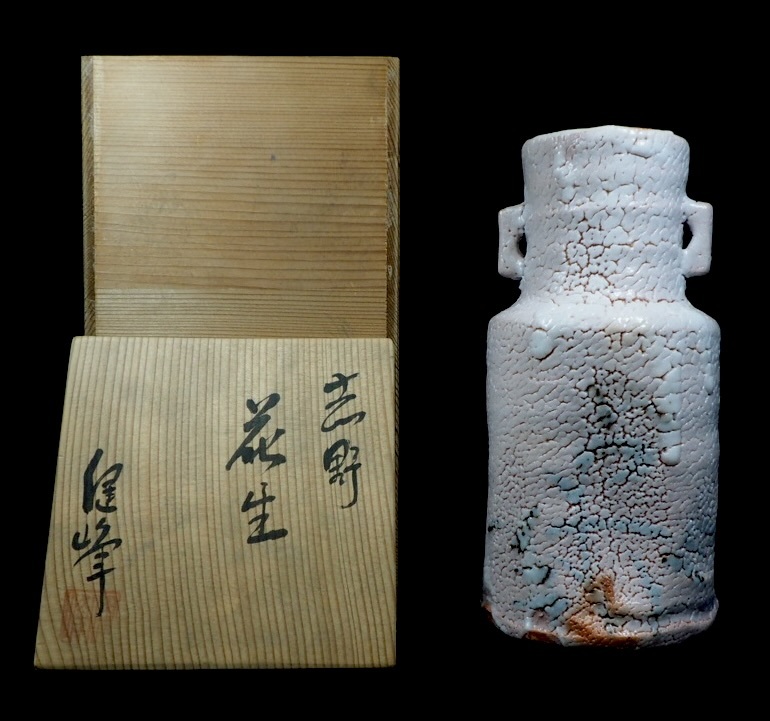 志野
花生
健峰